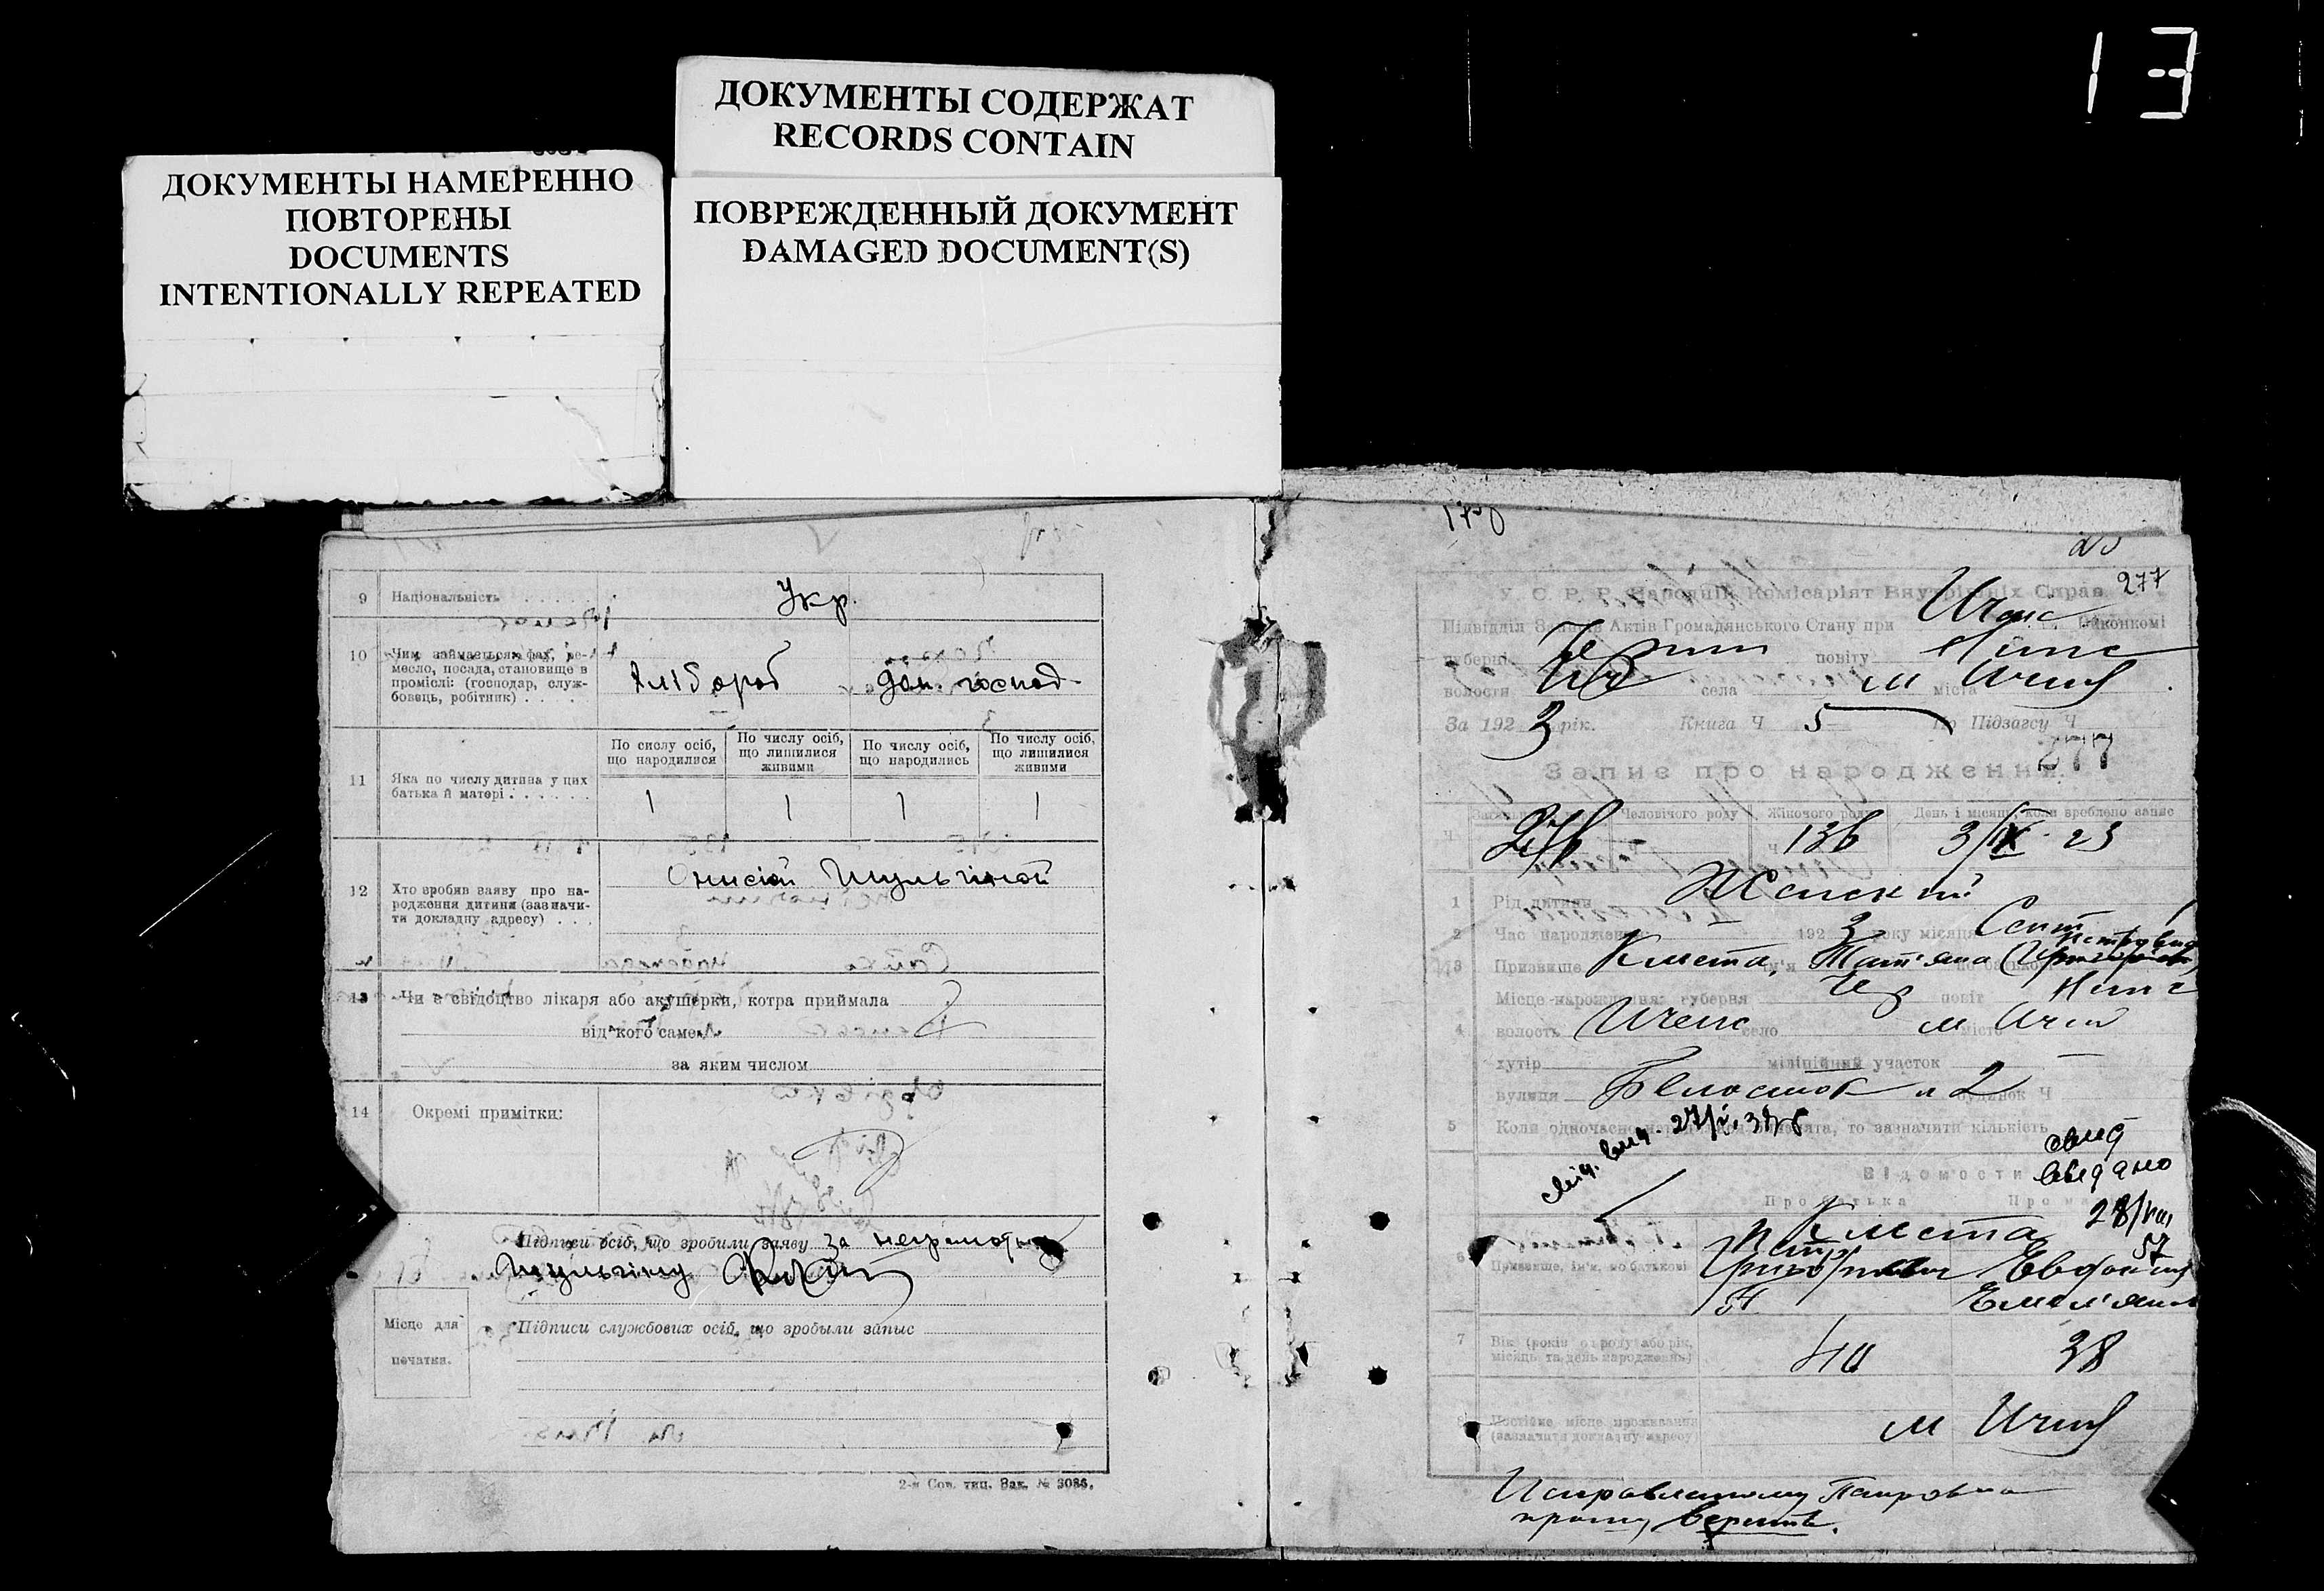 13
ДОКУМЕНТЫ СОДЕРЖАТ
RECORDS CONTAIN
ПОВРЕЖДЕННЫЙ ДОКУМЕНТ
DAMAGED DOCUMENT(S)
ДОКУМЕНТЫ НАМЕРЕННО
ПОВТОРЕНЫ
DOCUMENTS
INTENTIONALLY REPEATED
9 Національність Укр.
10 Чим займається: фах, ре-
месло, посада, становище в
промислі: (господар, служ-
бовець, робітник)
Хлібороб дом. господ.
11 Яка по числу дитина у цих
батька й матері
По числу осіб,
що народилися
По числу осіб,
що лишилися
живими
По числу осіб,
що народились
По числу осіб,
що лишилися
живими
1 1 1 1
12 Хто зробив заяву про на-
родження дитини (зазначи-
ти докладну адресу)
Онисій Шульгіной
13 Чи є свідоцтво лікаря або акушерки, котра приймала
від кого саме
за яким числом
14 Окремі примітки:
Підписи осіб, що зробили заяву за неграмотну
Шульгіну
Місце для
печатки.
Підписи службових осіб, що зробыли запыс
2-я Сов. тип. Зак. № 3086.
277
У. С. Р. Р. Народній Комісаріят Внутрішніх Справ.
Підвідділ Записів Актів Громадянського Стану при Ичнс Виконкомі
губерні Черниг повіту Ніжис
волости села м міста Ични
За 192 3 рік. Книга Ч 5 По Підзагсу Ч
277
Запис про народження.
Ч Загальн. Человічого роду Жіночого роду День і місяць, коли зроблено запис
276 136 3/IX 23
1 Рід дитини Женский
2 Час народження 192 3 року місяця Сент
3 Призвище Кмета, ім'я Тат'яна по батькові Петровна
Місце народження: губерня Чер повіт Ніжис
4 волость Иченс село м місто Ични
хутір міліційний участок
вулиця Белосток и 2 будинок Ч
5 Коли одночасно народилися двійнята, то зазначити кількість
свід. вид. 27/
свид
видано
28/VIII
57
Відомости
Про батька Про ма
6 Призвище, ім'я, по батькові
Кмета
Петр
Евфимия
Емельянов
7 Вік (років от роду або рік,
місяць та день народження)
40 38
8 Постійне місце проживання
(зазначити докладну адресу)
м Ични
Исправленному Петровна
прошу верить.